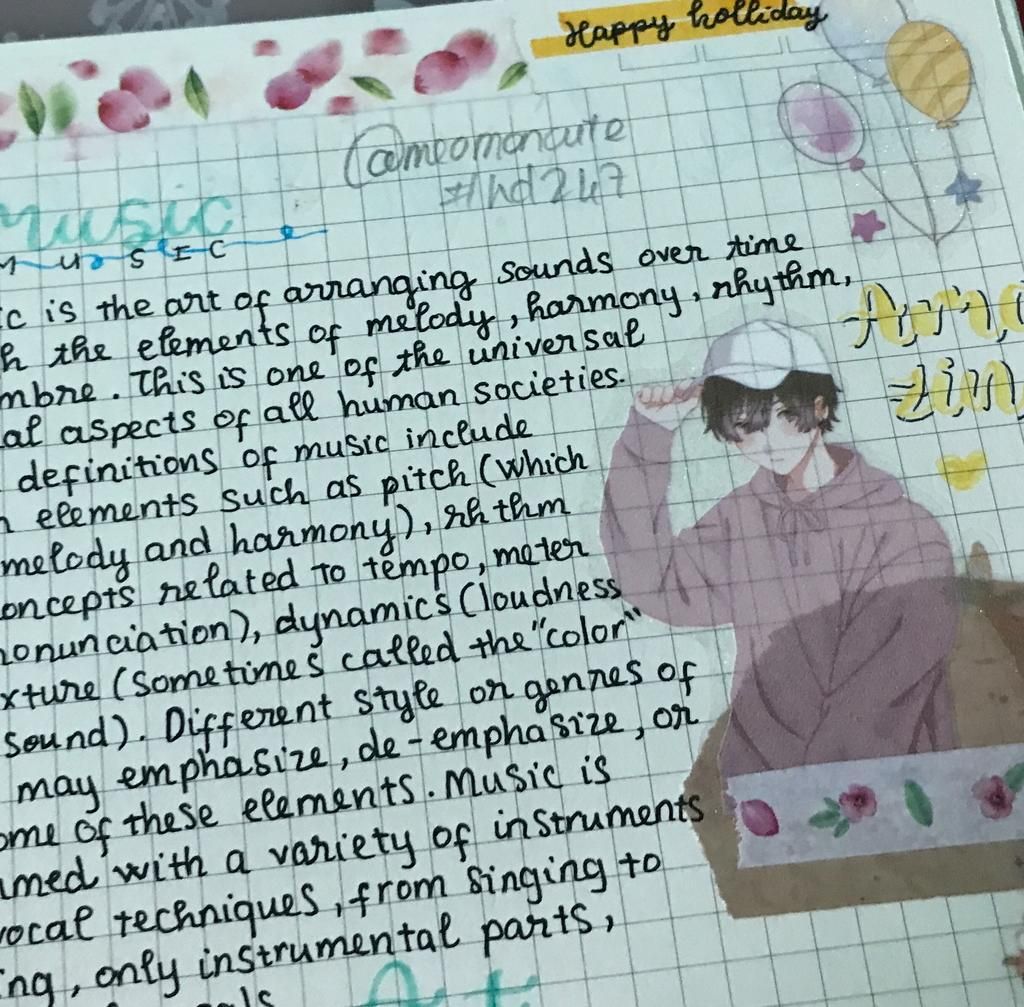 Happy holliday
@meomoncute
#hd247
Music
M U S I C
c is the art of arranging sounds over time
h the elements of melody, harmony, rhythm,
mbre. This is one of the universal
al aspects of all human societies.
definitions of music include
n elements such as pitch (which
melody and harmony), rhthm
oncepts related to tempo, meter
ronunciation), dynamics (loudness
xture (sometimes called the "color"
sound). Different style or genres of
may emphasize, de-emphasize, or
ome of these elements. Music is
med with a variety of instruments
vocal techniques, from singing to
ing, only instrumental parts,